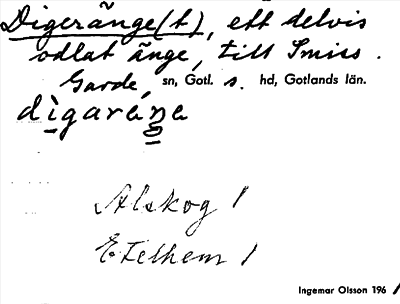 Digeränge(t), ett delvis
odlat änge, till Smiss.
Garde, sn, Gotl. s. hd, Gotlands län.
digaräna
Alskog 1
Etelhem 1
Ingemar Olsson 1961